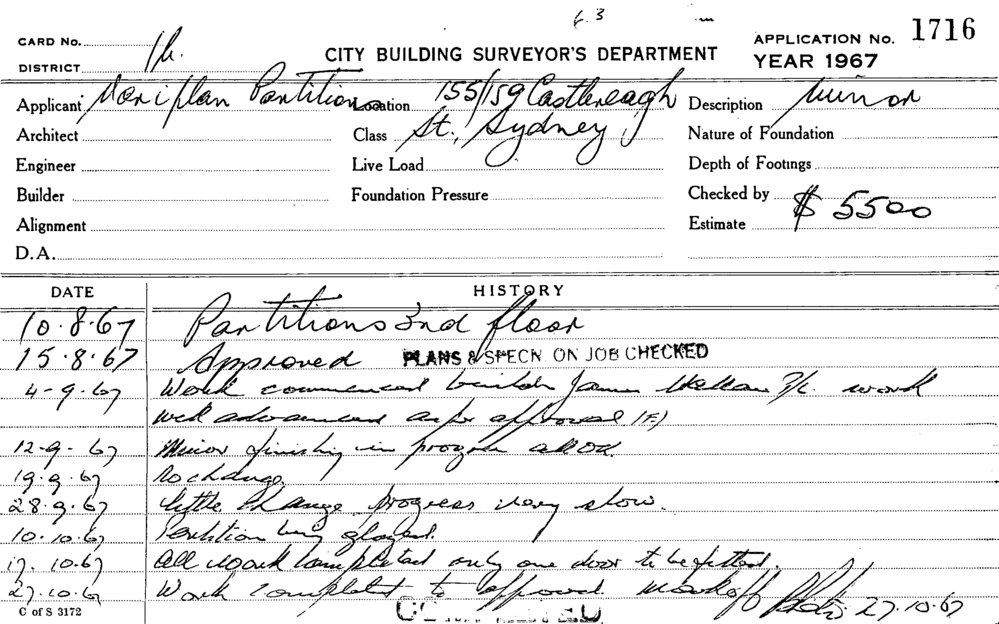 6.3
CARD No.
DISTRICT
CITY BUILDING SURVEYOR'S DEPARTMENT
APPLICATION No. 1716
YEAR 1967
Applicant Partitions Location 155/159 Castlereagh Description Minor
Architect Class St., Sydney Nature of Foundation
Engineer Live Load Depth of Footings
Builder Foundation Pressure Checked by
Alignment Estimate $ 5500
D.A.
DATE HISTORY
10.8.67 Partitions 3nd floor
15.8.67 Approved PLANS & SPECN ON JOB CHECKED
4-9-67 Work commenced builder James P/L. work
well advanced as per approval (F)
12-9-67 Minor finishing in progress all OK.
19.9.67 No change.
28.9.67 little change progress very slow.
10.10.67 Partition being glazed.
17.10.67 All work completed only one door to be fitted.
27.10.67 Work completed to approval. Mark off 27.10.67
C of S 3172